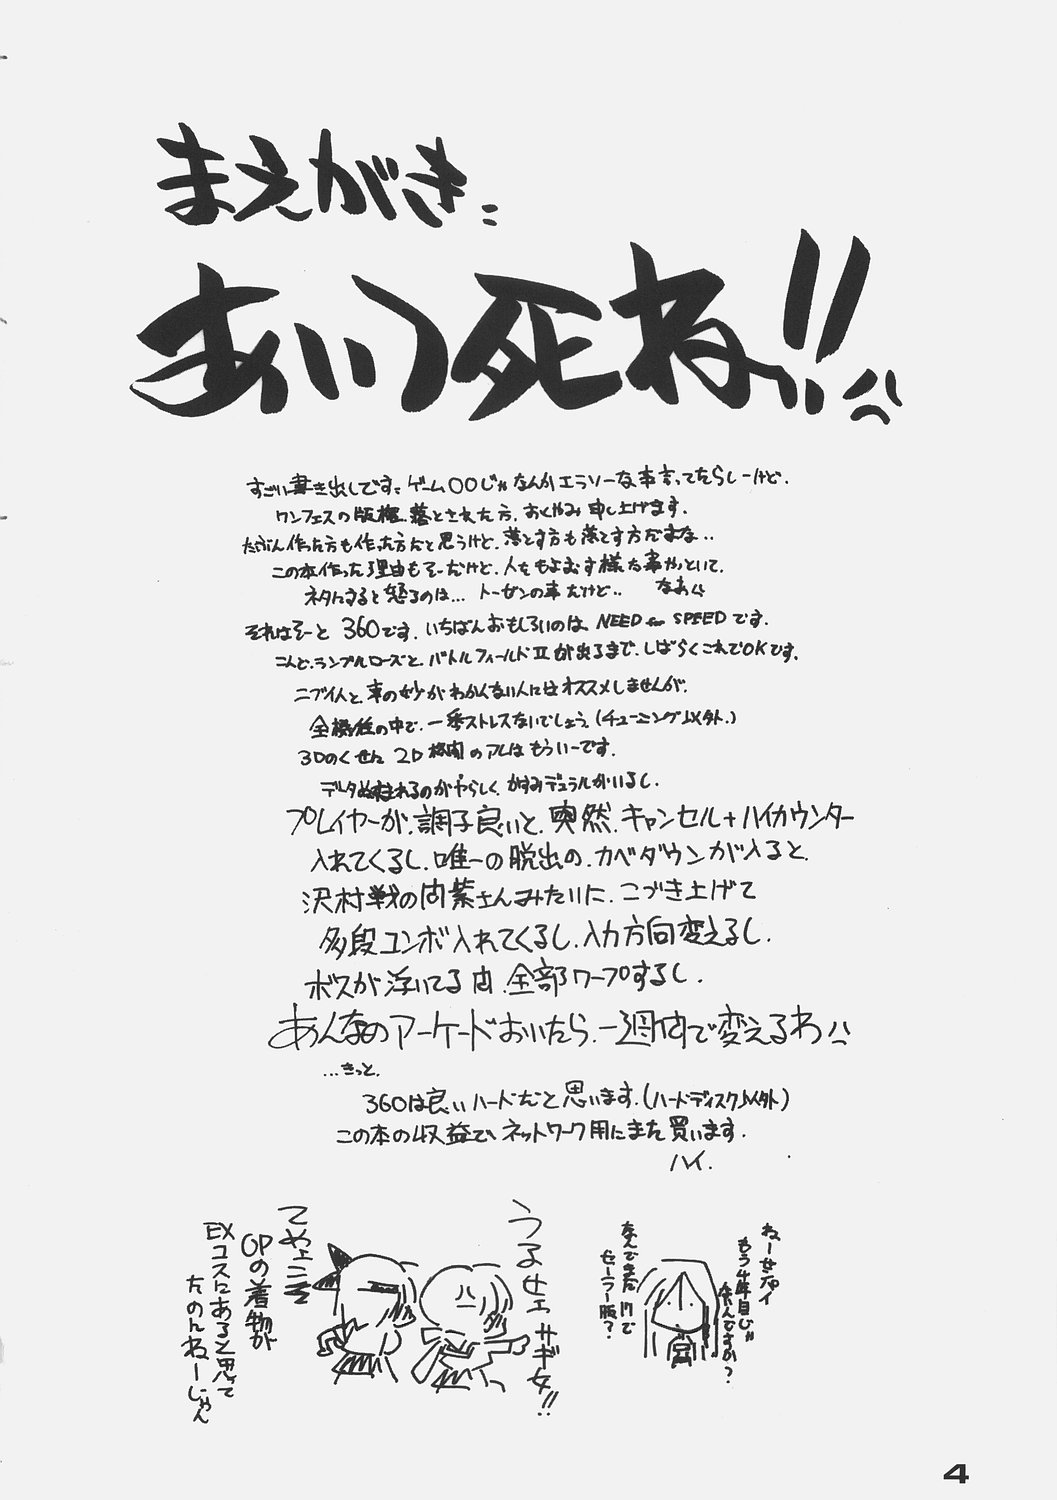 まえがき、
あいつ死ね!!
すごい書き出しです。ゲーム〇〇じゃなんかエラソーな事言ってたらしーけど、
ワンフェスの版権、落とされた方、おくやみ申し上げます。
たぶん作った方も作った方だと思うけど、落とす方も落とす方だよな..
この本作った理由もそーだけど、人をもよおす様な事やっといて、
ネタにすると怒るのは... トーゼンの事だけど.. なあ
それはそーと 360です。いちばんおもしろいのは、NEED for SPEEDです。
こんと、ランブルローズと、バトルフィールドⅡが出るまで、しばらくこれでOKです。
ニブイ人と、車の妙がわかんない人にはオススメしませんが、
全機種の中で、一番ストレスないでしょう。(チューニング以外。)
3Dのくせに 2D格闘のアレはもういーです。
かすみデュラルがいるし、
プレイヤーが、調子良いと、突然、キャンセル+ハイカウンター
入れてくるし、唯一の脱出の、カベダウンが入ると、
沢村戦の間柴さんみたいに、こづき上げて
多段コンボ入れてくるし、入力方向変えるし、
ボスが浮いてる間、全部ワープするし、
あんなのアーケードおいたら、一週間で変えるわ
...きっと、
360は良いハードだと思います。(ハードディスク以外)
この本の収益で、ネットワーク用にまた買います。
ハイ.
ねーせんぱイ
もう4年目び
なんですか?
なんでまた17で
セーラー服?
うるせェサギ女!!
てやェ
OPの着物が
EXコスにあると思って
たのんねーじゃん
4